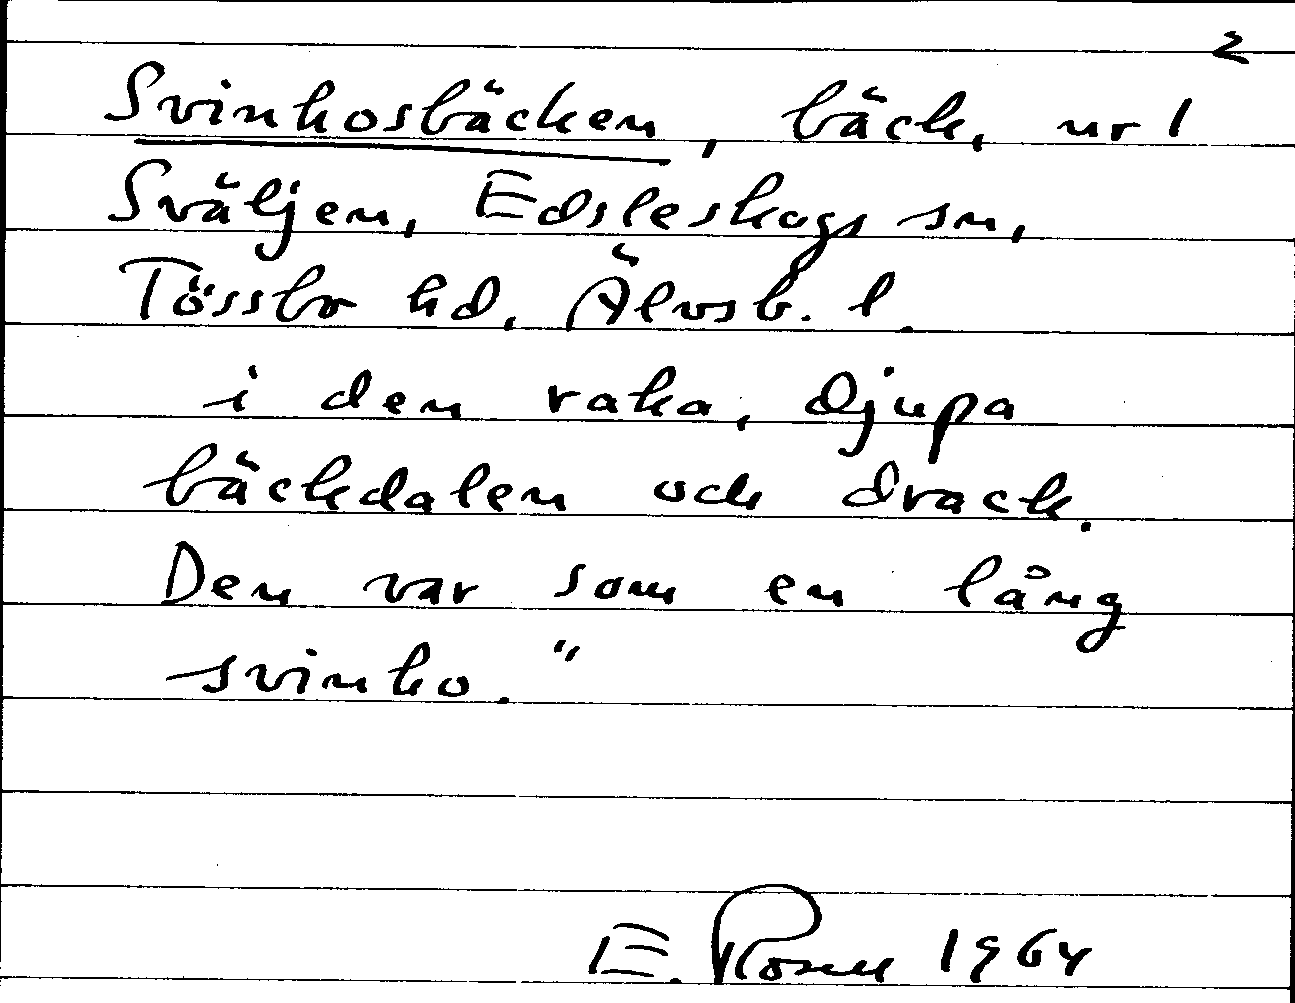 2
Svinhosbäcken, bäck, nr 1
Sväljen, Edsleskogs sn,
Tössbo hd, Älvsb. l.
i den raka, djupa
bäckdalen och drack.
Den var som en lång
svinho."
E. Rosell 1964